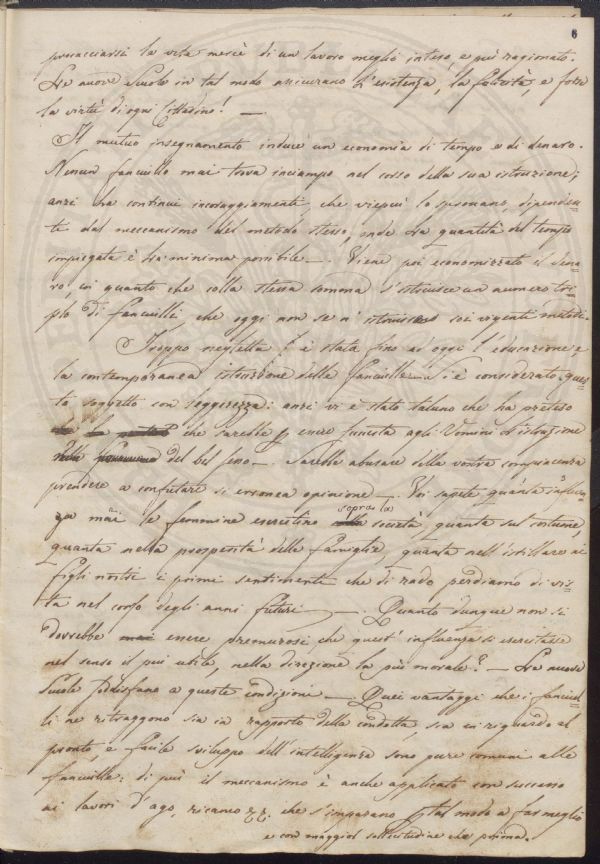 6
procacciarsi la vita mercè di un lavoro meglio inteso, e più ragionato.
Le nuove Scuole in tal modo assicurano l'esistenza, la felicità e forse
la virtù di ogni Cittadino! —
Il mutuo insegnamento induce un economia di tempo e di denaro.
Nessun fanciullo mai trova inciampo nel corso della sua istruzione;
anzi ha continui incoraggiamenti che viepiù lo spronano, dipenden=
te dal meccanismo del metodo stesso, onde la quantità del tempo
impiegata è la minima possibile —. Viene poi economizzato il dena=
ro, in quanto che colla stessa somma s'istruisce un numero tri=
plo di fanciulli che oggi non se n'istruiscono coi vigenti metodi.
Troppo negletta è stata fino ad oggi l'educazione e
la contemporanea istruzione delle fanciulle — si è considerato ques=
to soggetto con leggerezza: anzi vi è stato taluno che ha preteso
che sarebbe p essere funesta agli Uomini l'istruzione
del bel sesso —. Sarebbe abusare della vostra compiacenza
prendere a confutare sì erronea opinione —. Voi sapete quanta influen=
za mai le femmine esercitino sopra la società, quanta sul costume,
quanta nella prosperità delle famiglie, quanta nell'istillare ai
figli nostri i primi sentimenti che di rado perdiamo di vis=
ta nel corso degli anni futuri —. Quanto dunque non si
dovrebbe essere premurosi che quest'influenza si esercitasse
nel senso il più utile, nella direzione la più morale? — Le nuove
Scuole sodisfano a queste condizioni —. Quei vantaggi che i fanciul=
li ne ritraggono sia in rapporto della condotta sia in riguardo al
pronto e facile sviluppo dell'intelligenza sono pure comuni alle
fanciulle: di più il meccanismo è anche applicato con successo
ai lavori d'ago, ricamo &c. che s'imparano tal modo a far meglio
e con maggior sollecitudine che prima.